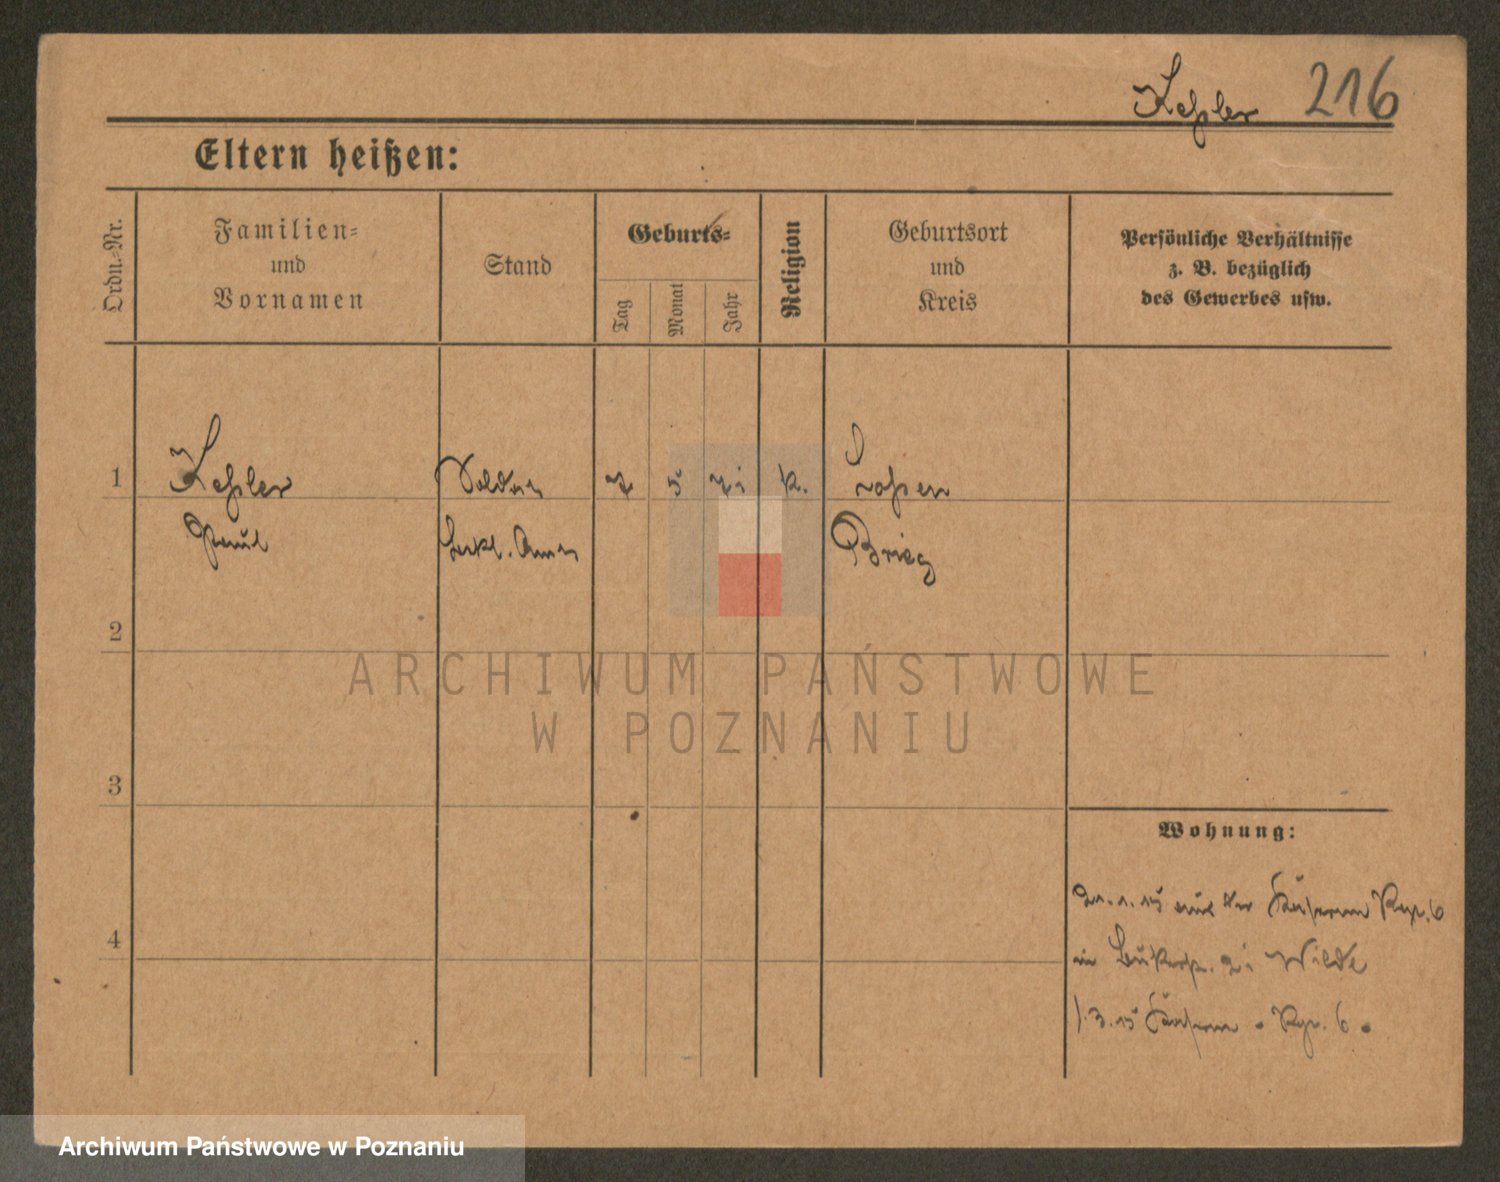 Keßler 216
Eltern heißen:
Ordn.-Nr.
Familien-
und
Vornamen
Stand
Geburts-
Tag
Monat
Jahr
Religion
Geburtsort
und
Kreis
Persönliche Verhältnisse
z. B. bezüglich
des Gewerbes usw.
1
Keßler
Paul
Soldat
7 5 71 k.
Brieg
2
3
4
Wohnung:
21.1.15 aus der Kasernen
in 21 Wilda
3.15 Kasernen 6
ARCHIWUM PAŃSTWOWE
W POZNANIU
Archiwum Państwowe w Poznaniu